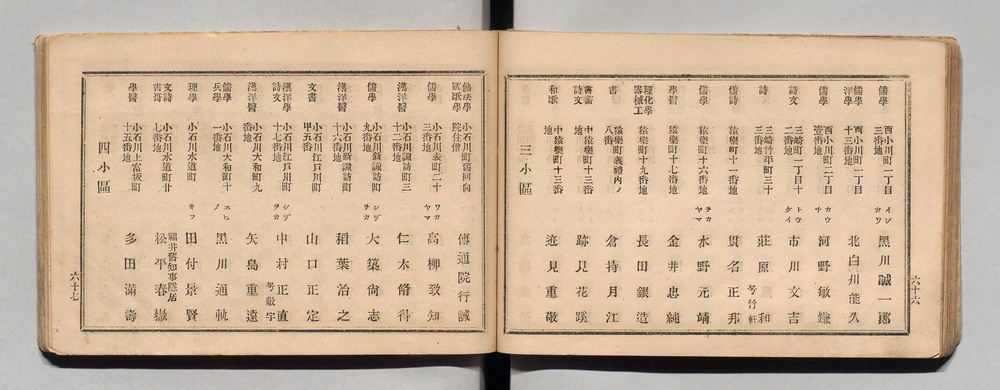 儒學 西小川町一丁目三番地 イシカワ 黒川誠一郎
儒學 洋學 西小川町一丁目十三番地 北白川能久
儒學 西小川町二丁目壹番地 カウチ 河野敏鎌
詩文 三崎町一丁目十二番地 トウケイ 市川文吉
詩文 三崎竹平町三十三番地 莊原和 号竹軒
儒詩 猿樂町十一番地 貫名正邦
儒學 猿樂町十六番地 ヲカヤマ 水野元靖
學醫 猿樂町十七番地 金井忠純
理化學 器械工 猿樂町十九番地 長田銀造
書 猿樂町義禮内ノ八番 倉持月江
書畵 詩文 中猿樂町十三番地 跡見花蹊
和歌 中猿樂町十三番地 逸見重敬
三小區
六十六
佛法學 小石川町 院住僧 傳通院行誡
儒學 小石川表町二十三番地 ワカヤマ 高柳致知
漢洋醫 小石川諏訪町三十二番地 仁木脩得
儒學 小石川新諏訪町九番地 シヅヲカ 大築尙志
漢洋醫 小石川新諏訪町十六番地 稻葉冶之
文書 小石川江戸川町甲五番 山口正定
漢洋學 詩文 小石川江戸川町十七番地 シヅヲカ 中村正直 号敬宇
漢洋醫 小石川大和町九番地 矢島重遠
儒學 兵學 小石川大和町十一番地 エヒメ 黒川通軌
理學 小石川水道町 キフ 田付景賢
文詩 書哥 小石川水道町廿七番地 福井舊知事隱居 松平春嶽
學醫 小石川上富坂町十五番地 多田滿壽
四小區
六十七